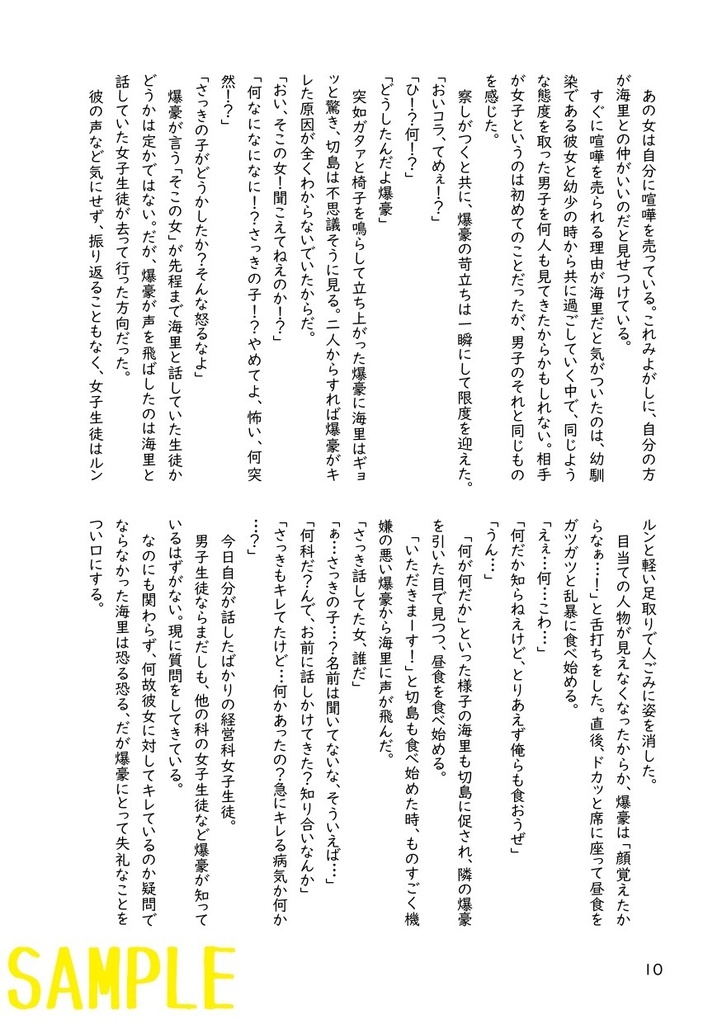 あの女は自分に喧嘩を売っている。これみよがしに、自分の方
が海里との仲がいいのだと見せつけている。
　すぐに喧嘩を売られる理由が海里だと気がついたのは、幼馴
染である彼女と幼少の時から共に過ごしていく中で、同じよう
な態度を取った男子を何人も見てきたからかもしれない。相手
が女子というのは初めてのことだったが、男子のそれと同じもの
を感じた。
　察しがつくと共に、爆豪の苛立ちは一瞬にして限度を迎えた。
「おいコラ、てめぇ！？」
「ひ！？何！？」
「どうしたんだよ爆豪」
　突如ガタァと椅子を鳴らして立ち上がった爆豪に海里はギョ
ッと驚き、切島は不思議そうに見る。二人からすれば爆豪がキ
レた原因が全くわからないでいたからだ。
「おい、そこの女！聞こえてねえのか！？」
「何なになになに！？さっきの子！？やめてよ、怖い、何突
然！？」
「さっきの子がどうかしたか？そんな怒るなよ」
　爆豪が言う「そこの女」が先程まで海里と話していた生徒か
どうかは定かではない。だが、爆豪が声を飛ばしたのは海里と
話していた女子生徒が去って行った方向だった。
　彼の声など気にせず、振り返ることもなく、女子生徒はルン
ルンと軽い足取りで人ごみに姿を消した。
　目当ての人物が見えなくなったからか、爆豪は「顔覚えたか
らなぁ…！」と舌打ちをした。直後、ドカッと席に座って昼食を
ガツガツと乱暴に食べ始める。
「えぇ…何…こわ…」
「何だか知らねえけど、とりあえず俺らも食おうぜ」
「うん…」
　「何が何だか」といった様子の海里も切島に促され、隣の爆豪
を引いた目で見つつ、昼食を食べ始める。
　「いただきまーす！」と切島も食べ始めた時、ものすごく機
嫌の悪い爆豪から海里に声が飛んだ。
「さっき話してた女、誰だ」
「ぁ…さっきの子…？名前は聞いてないな、そういえば…」
「何科だ？んで、お前に話しかけてきた？知り合いなんか」
「さっきもキレてたけど…何かあったの？急にキレる病気か何か
…？」
　今日自分が話したばかりの経営科女子生徒。
　男子生徒ならまだしも、他の科の女子生徒など爆豪が知って
いるはずがない。現に質問をしてきている。
　なのにも関わらず、何故彼女に対してキレているのか疑問で
ならなかった海里は恐る恐る、だが爆豪にとって失礼なことを
つい口にする。
10
SAMPLE